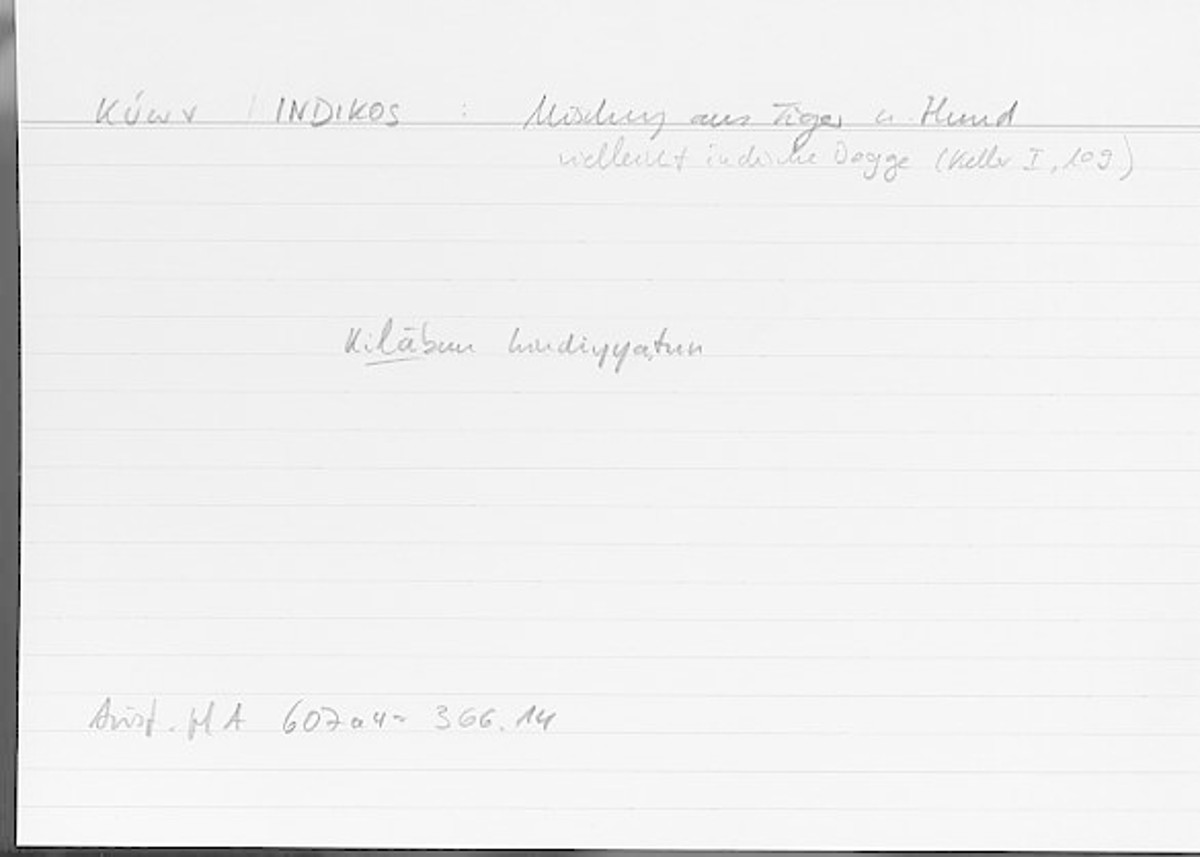 κύων INDIKOS : Mischung aus Tiger u. Hund
vielleicht indische Dogge (Keller I, 109)
Kilābun hindiyyatun
Arist. HA 607a4 = 366.14